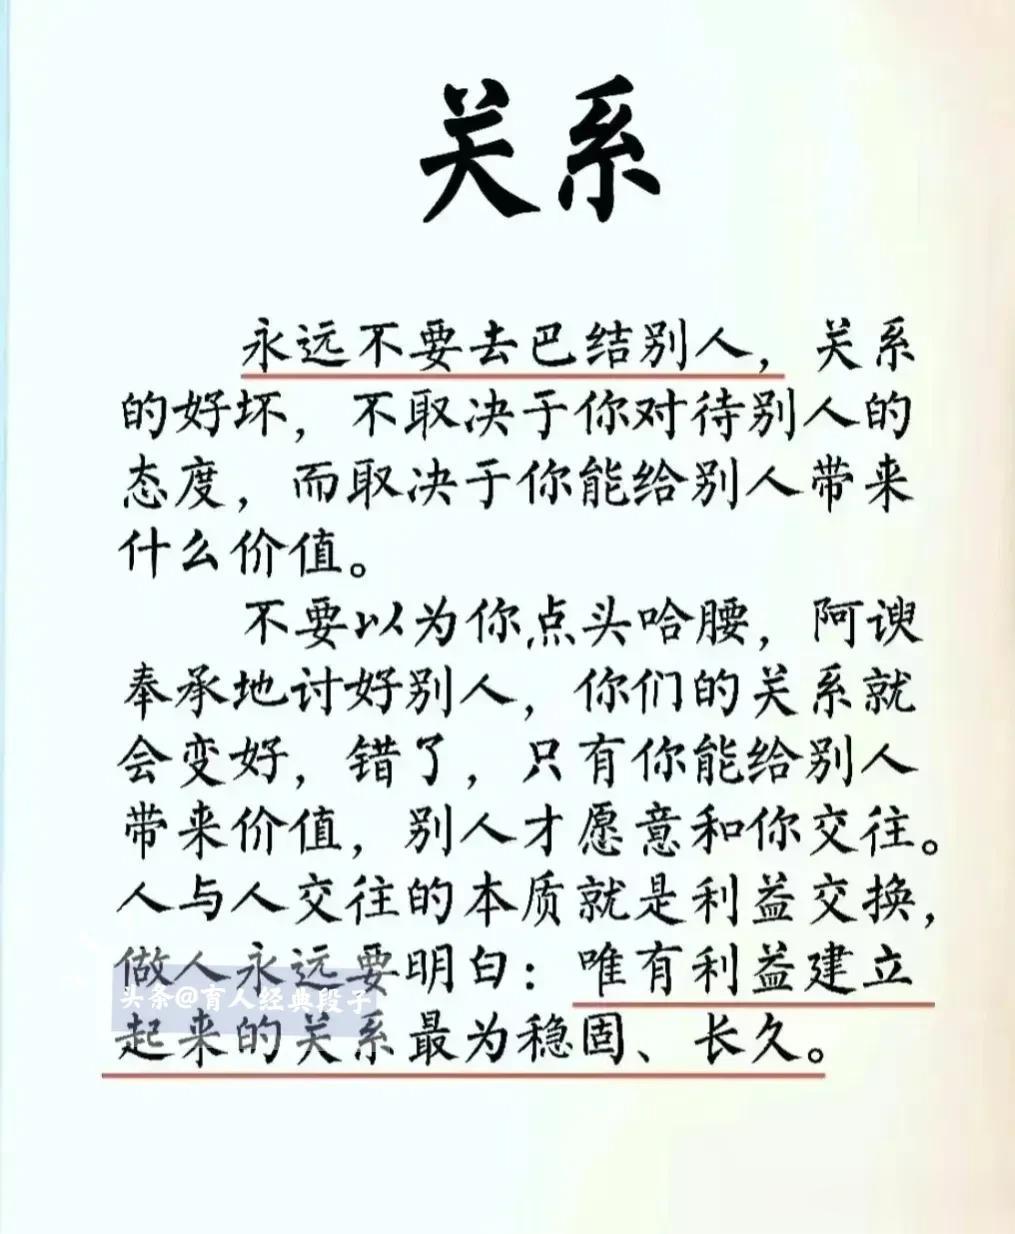 关系
永远不要去巴结别人，关系
的好坏，不取决于你对待别人的
态度，而取决于你能给别人带来
什么价值。
不要以为你点头哈腰，阿谀
奉承地讨好别人，你们的关系就
会变好，错了，只有你能给别人
带来价值，别人才愿意和你交往。
人与人交往的本质就是利益交换，
做人永远要明白：唯有利益建立
头条@育人经典段子
起来的关系最为稳固、长久。